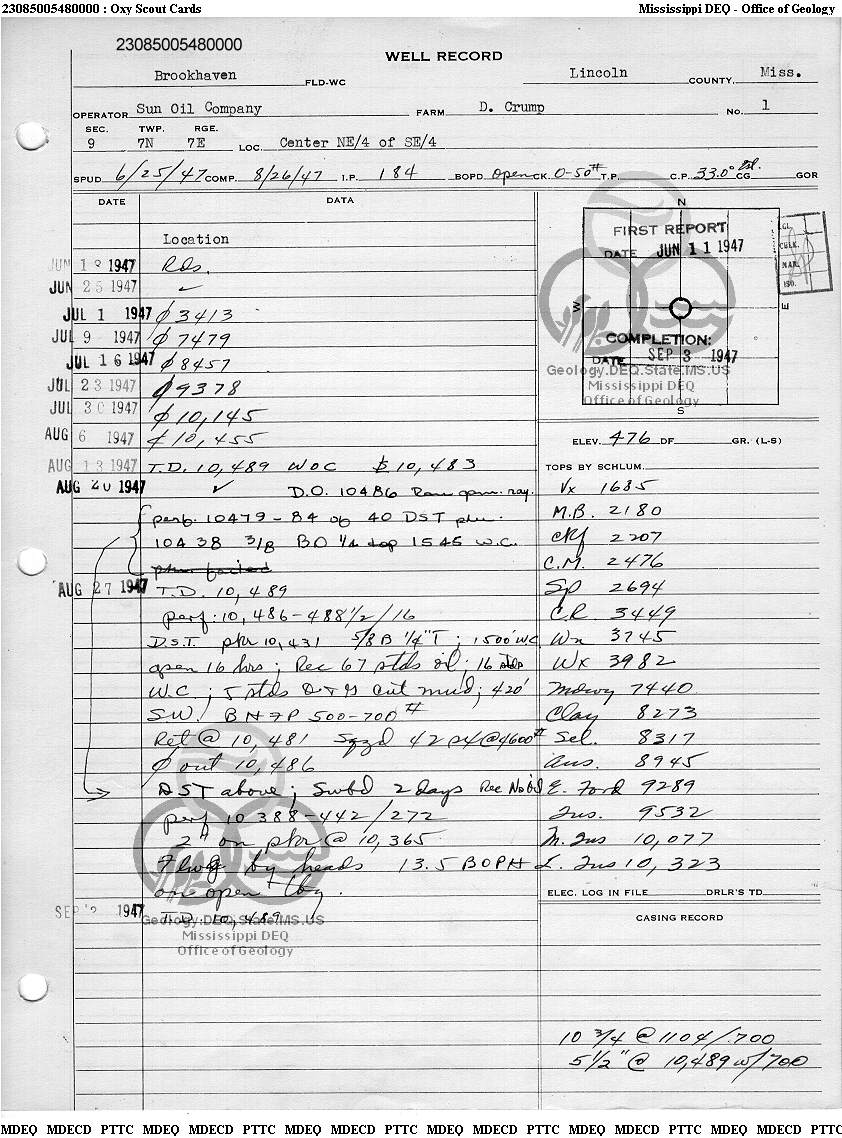 23085005480000 : Oxy Scout Cards Mississippi DEQ - Office of Geology
23085005480000
WELL RECORD
Brookhaven FLD-WC Lincoln COUNTY, Miss.
OPERATOR Sun Oil Company FARM D. Crump NO. 1
SEC. TWP. RGE.
9 7N 7E LOC. Center NE/4 of SE/4
SPUD 6/25/47 COMP. 8/26/47 I.P. 184 BOPD open CK. 0-50# T.P. C.P. 33.0° CG GOR
DATE DATA
Location
JUN 18 1947 Rds.
JUN 25 1947 ✓
JUL 1 1947 ϕ 3413
JUL 9 1947 ϕ 7479
JUL 16 1947 ϕ 8457
JUL 23 1947 ϕ 9378
JUL 30 1947 ϕ 10,145
AUG 6 1947 ϕ 10,455
AUG 13 1947 T.D. 10,489 WOC 10,483
AUG 20 1947 ✓ D.O. 10486 Ran gam. ray.
perf. 10479-84 of 40 DST
10438 3/8 BO 1/4 top 1545 W.C.
AUG 27 1947 T.D. 10,489
perf: 10,486-488 1/2 /16
D.S.T. pkr 10,431 5/8 B 1/4" T ; 1500' WC
open 16 hrs; Rec 67 stds oil; 16 stds
W.C ; 5 stds O & G cut mud; 420'
SW. BHFP 500-700#
Ret @ 10,481 Sqzd 42 sx @ 4600#
ϕ out 10,486
DST above; Swbd 2 days Rec No oil
perf 10388-442/272
2" on pkr @ 10,365
Flwg by heads 13.5 BOPH
on open tbg.
SEP 2 1947 T.D. 10,489
N
W
E
S
FIRST REPORT
DATE JUN 11 1947
COMPLETION:
DATE SEP 3 1947
LGL.
CHLK.
MAP.
ISO.
Geology.DEQ.State.MS.US
Mississippi DEQ
Office of Geology
ELEV. 476 DF GR. (L-S)
TOPS BY SCHLUM.
Vx 1685
M.B. 2180
ckf 2207
C.M. 2476
Sp 2694
C.R. 3449
Wn 3745
Wx 3982
Mdwy 7440
Clay 8273
Sel. 8317
Aus. 8945
E. Ford 9289
Tus. 9532
M. Tus 10,077
L. Tus 10,323
ELEC. LOG IN FILE DRLR'S TD
CASING RECORD
10 3/4 @ 1104/.700
5 1/2" @ 10,489 w/700
Geology.DEQ.State.MS.US
Mississippi DEQ
Office of Geology
MDEQ MDECD PTTC MDEQ MDECD PTTC MDEQ MDECD PTTC MDEQ MDECD PTTC MDEQ MDECD PTTC MDEQ MDECD PTTC